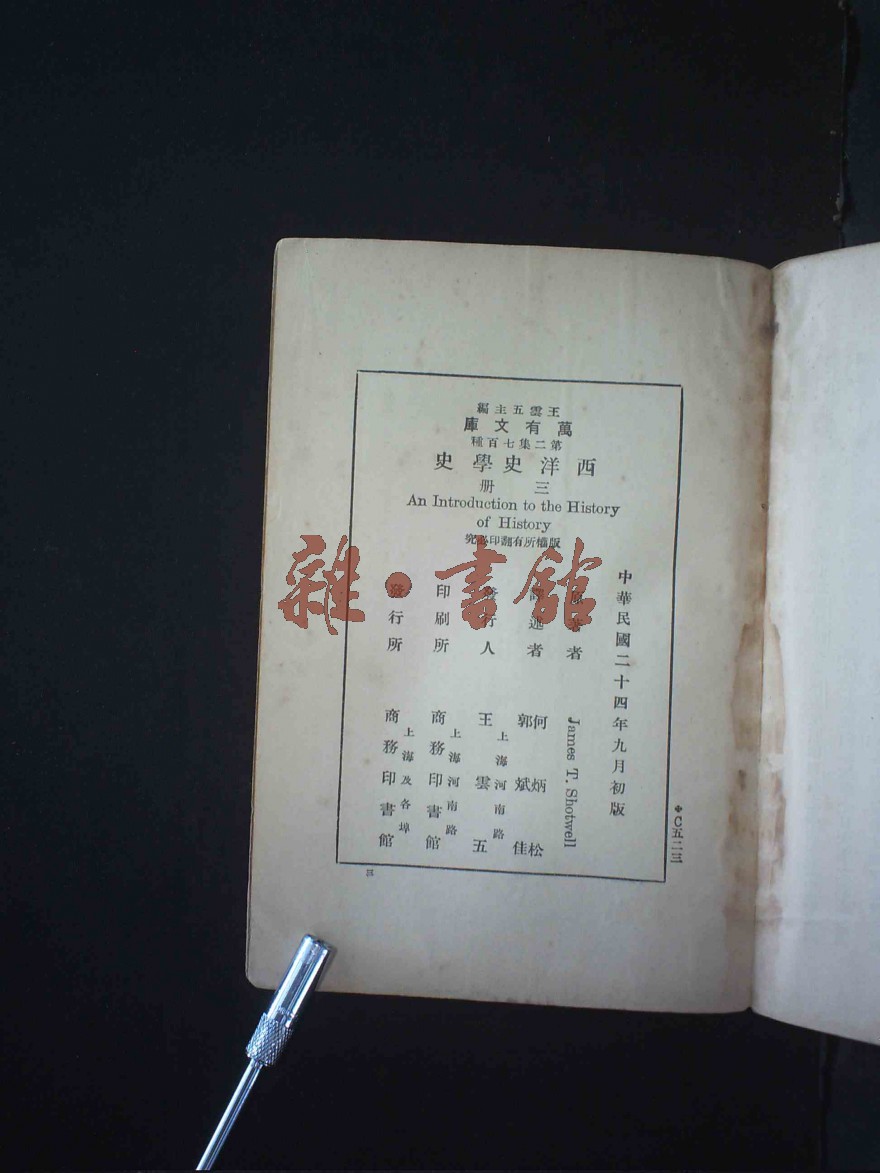 王雲五主編
萬有文庫
第二集七百種
西洋史學史
三册
An Introduction to the History
of History
版權所有翻印必究
中華民國二十四年九月初版
原著者 James T. Shotwell
譯述者 何炳松
郭斌佳
發行人 上海河南路
王雲五
印刷所 上海河南路
商務印書館
發行所 上海及各埠
商務印書館
*C五二三
雜·書館